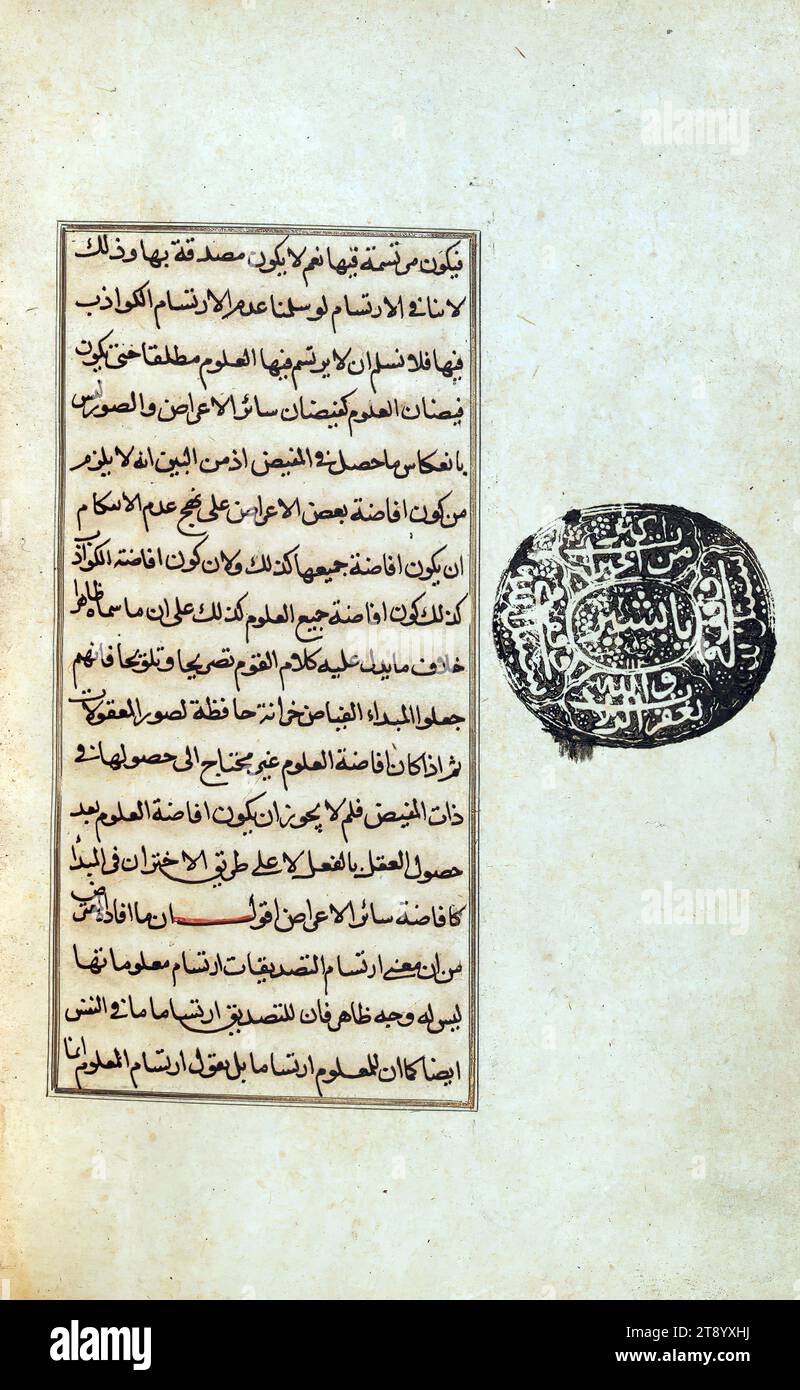 فيكون مرتسمة فيها نعم لا يكون مصدقة بها وذلك
لا ينافي الارتسام لو سلمنا عدم الارتسام الكواذب
فيها فلا نسلم ان لا يرتسم فيها العلوم مطلقا حتى يكون
فيضان العلوم كفيضان سائر الاعراض والصور ليس
بانعكاس ما حصل في المفيض اذ من البين انه لا يلزم
من كون افاضة بعض الاعراض على نهج عدم
ان يكون افاضة جميعها كذلك ولان كون افاضة الكواذب
كذلك كون افاضة جميع العلوم كذلك على ان ما سماه ظاهرا
خلاف ما يدل عليه كلام القوم تصريحا وتلويحا فانهم
جعلوا المبداء الفياض خزانة حافظة لصور المعقولات
ثم اذا كان افاضة العلوم غير محتاج الى حصولها في
ذات المفيض فلم لا يجوز ان يكون افاضة العلوم بعد
حصول العقل بالفعل لا على طريق الاختزان في المبدأ
كافاضة سائر الاعراض اقول ان ما افاده
من ان معنى ارتسام التصديقات ارتسام معلوماتها
ليس له وجه ظاهر فان للتصديق ارتساما ما في النفس
ايضا كما ان للمعلوم ارتساما بل نقول ارتسام المعلوم انما
من
بشير
والله
alamy
alamy
alamy
Image ID: 2T8YXHJ
www.alamy.com